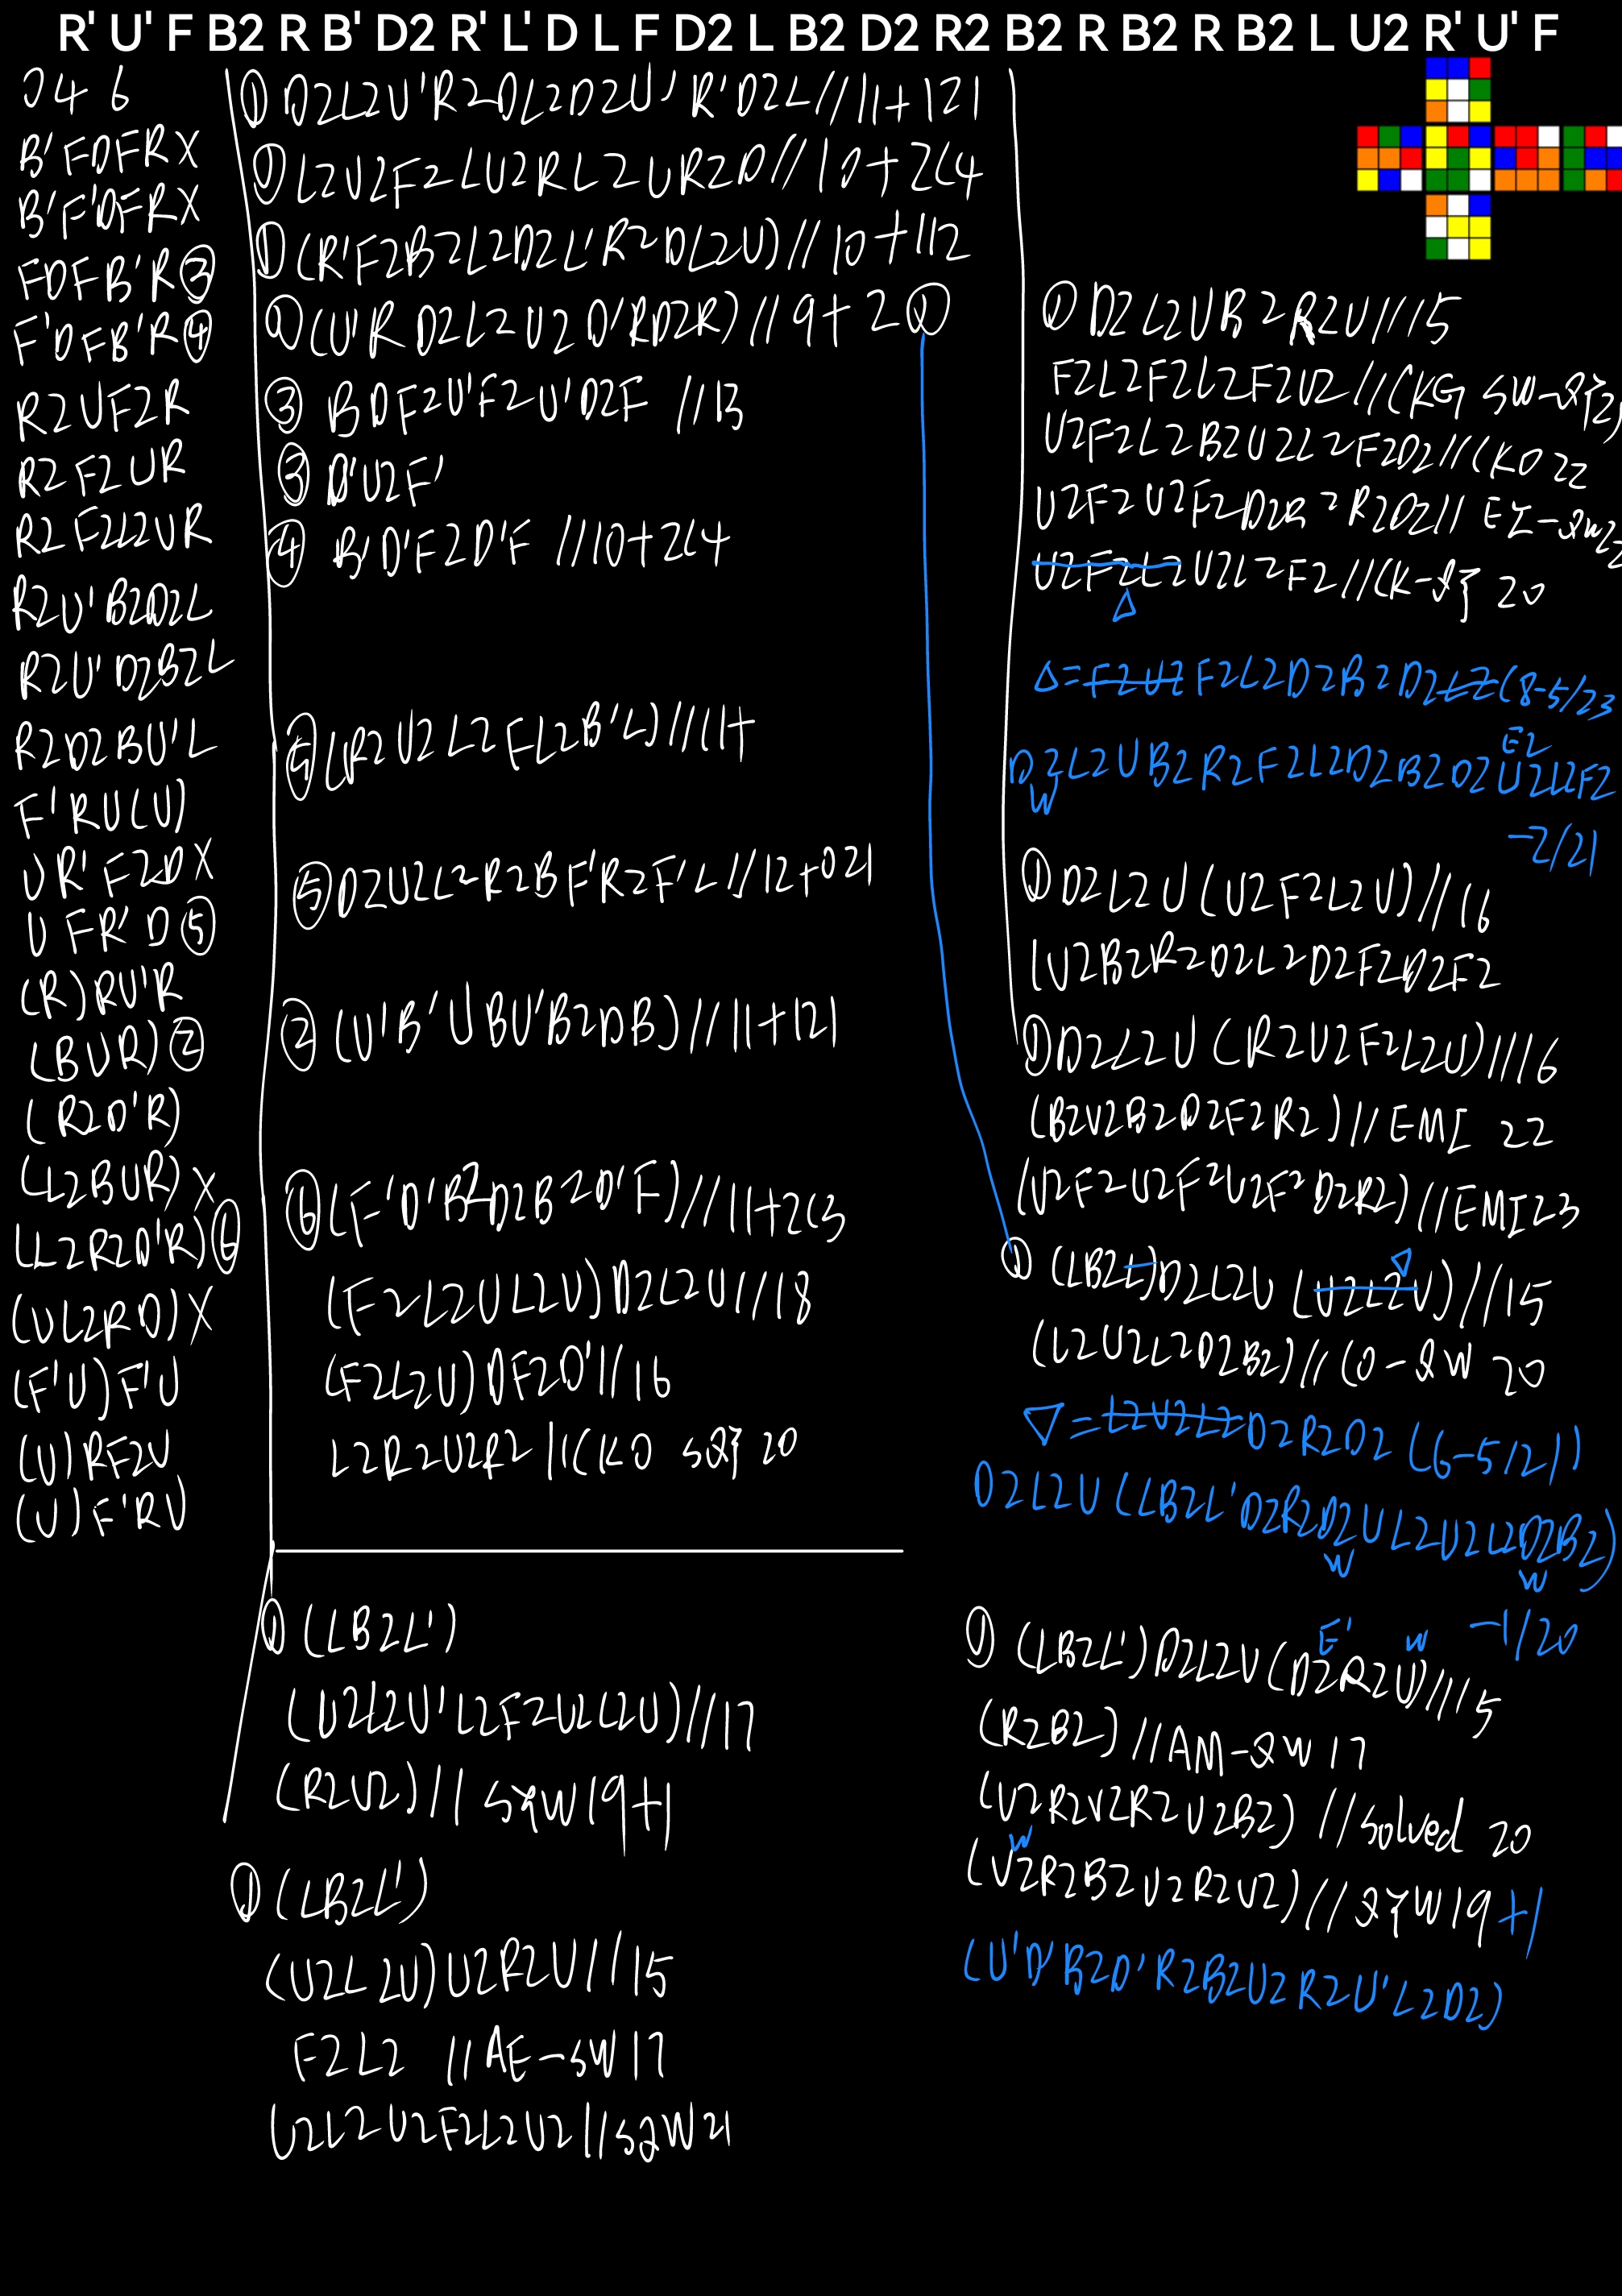 R' U' F B2 R B' D2 R' L' D L F D2 L B2 D2 R2 B2 R B2 R B2 L U2 R' U' F
046
B'FDFRX
B'F'DFRX
FDFB'R③
F'DFB'R④
R2UF2R
R2F2UR
R2F2L2UR
R2U'B2D2L
R2U'D2B2L
R2D2BU'L
F'RU(U)
UR'F2DX
UFR'D⑤
(R)RU'R
(BUR)②
(R2D'R)
(L2BUR)X
(L2R2D'R)⑥
(UL2RD)X
(F'U)F'U
(U)RF2U
(U)F'RU
① D2L2U'R2DL2D2U'R'D2L//11+121
① L2U2F2LU2RL2UR2D//10+2C4
① (R'F2B2L2D2L'R2DL2U)//10+112
① (U'RD2L2U2D'RD2R)//9+2①
③ BDF2U'F2U'D2F //13
③ D'U2F'
④ B'D'F2D'F //10+2C4
④ (R2U2L2FL2B'L)//11+
⑤ D2U2L2R2BF'R2F'L//12+021
② (U'B'UBU'B2DB)//11+121
⑥ (F'D'B2D2B2D'F)//11+2C3
(F2L2UL2U)D2L2U//18
(F2L2U)DF2D'//16
L2R2U2R2//CKO 20
① (LB2L')
(U2L2U'L2F2U2L2U)//17
(R2U2)// 19+1
① (LB2L')
(U2L2U)U2R2U//15
F2L2 //AE-SW17
U2L2U2F2L2U2// 21
① D2L2UB2R2U//15
F2L2F2L2F2U2//
U2F2L2B2U2L2F2D2//CKO 22
U2F2U2F2D2B2R2D2//
U2F2L2U2L2F2// 20
Δ
Δ=F2U2F2L2D2B2D2L2(8-5/23
E2
D2L2UB2R2F2L2D2B2D2U2L2F2
W
-2/21
① D2L2U(U2F2L2U)//16
(U2B2R2D2L2D2F2D2F2
① D2L2U(R2U2F2L2U)//16
(B2U2B2D2F2R2)//EMI 22
(U2F2U2F2U2F2D2R2)//EMI23
① (LB2L')D2L2U(U2L2U)//15
∇
(L2U2L2D2B2)// 20
∇=L2U2L2D2R2D2(6-5/21)
D2L2U(LB2L'D2R2D2UL2U2L2D2B2)
W W
-1/20
E' W
① (LB2L')D2L2U(D2R2U)//15
(R2B2)//AM- 17
(U2R2U2R2U2B2)//solved 20
W
(U2R2B2U2R2U2)// 19+1
(U'D'B2D'R2B2U2R2U'L2D2)